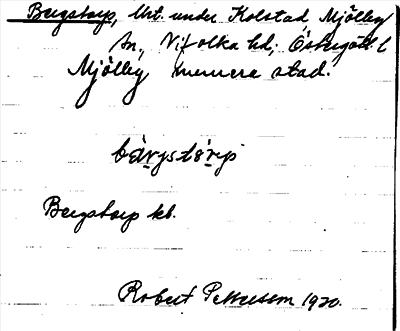 Bergstorp, Urt. under Kolstad, Mjölby
sn, Vifolka hd, Östergötl. l
Mjölby numera stad.
bärystårp
Bergstorp kb.
Robert Pettersson 1920.